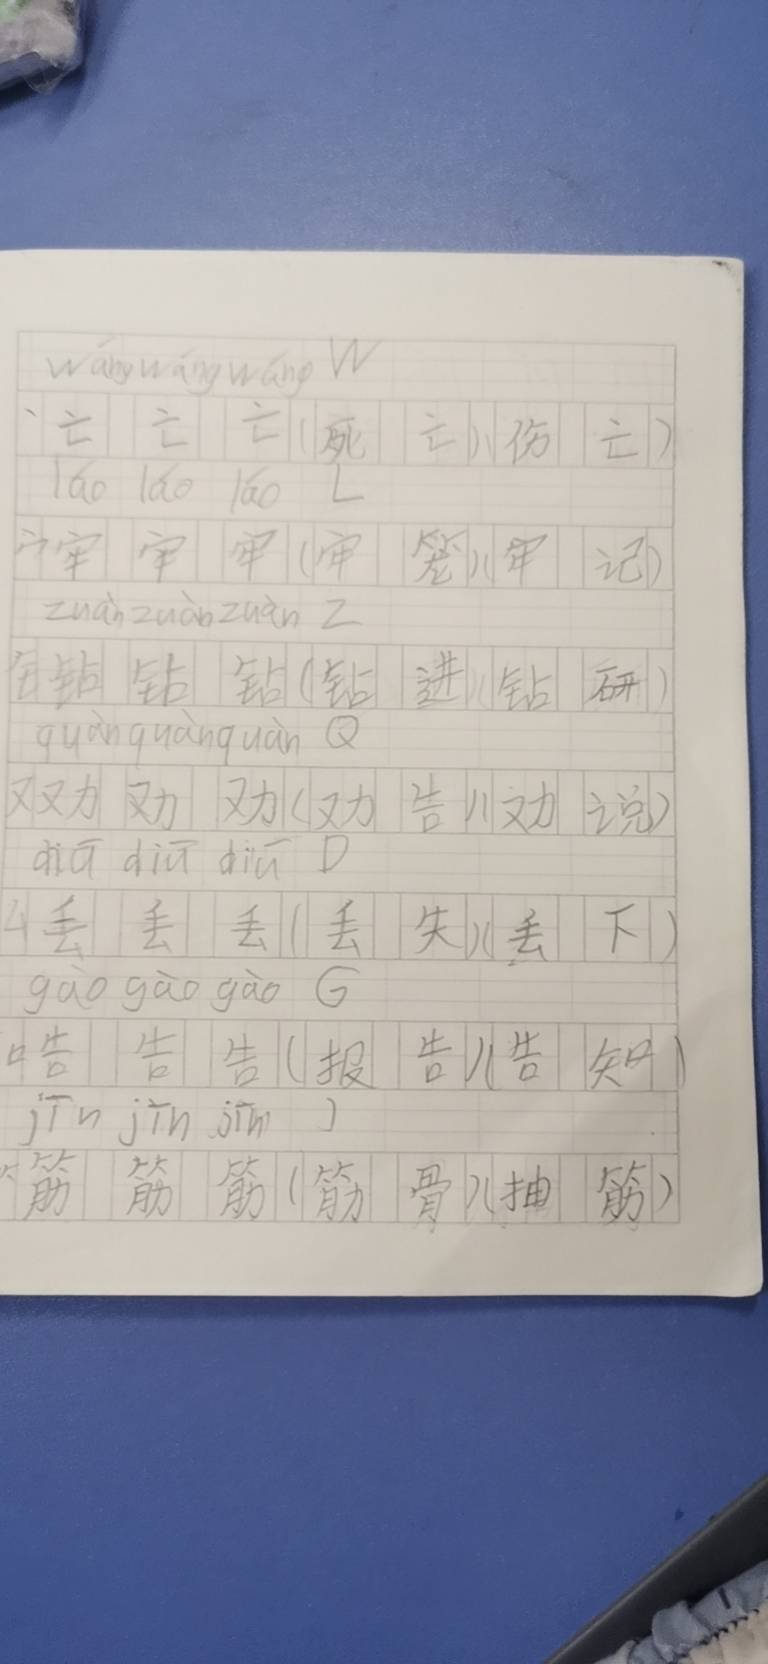 wáng wáng wáng W
丶亡 亡 亡(死亡)(伤亡)
láo láo láo L
宀牢 牢 牢(牢笼)(牢记)
zuàn zuàn zuàn Z
钅钻 钻 钻(钻进)(钻研)
quàn quàn quàn Q
又劝 劝 劝(劝告)(劝说)
diū diū diū D
厶丢 丢 丢(丢失)(丢下)
gào gào gào G
口告 告 告(报告)(告知)
jīn jīn jīn J
⺮筋 筋 筋(筋骨)(抽筋)